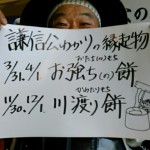 謙信公ゆかりの縁起物
おたちのもち
3/31.4/1 お強ち(の)餅
かわたりもち
11/30.12/1 川渡り餅